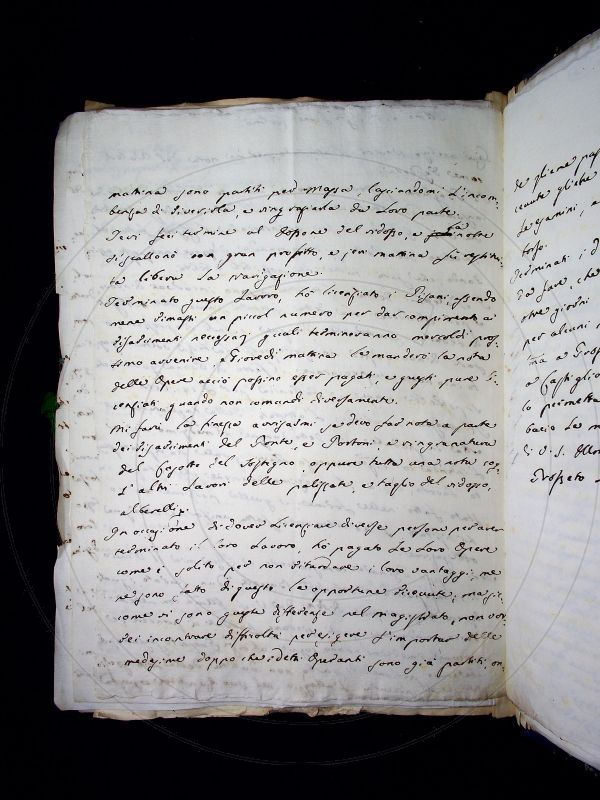 mattina sono partiti per Massa, lasciandomi l'incom-
benza di riverirla, e ringraziarla da loro parte.
Ieri feci termine al del ridosso, e la notte
con gran profitto, e jeri mattina fù restitui-
ta libera la navigazione.
Terminato questo Lavoro, hò licenziato i Pisani, essendo-
mene rimasti un piccol numero per dar compimento a
risarcimenti necessarj quali termineranno mercoldì pros-
simo avvenire, e Giovedì mattina le manderò la nota
delle Opere acciò possino esser pagati, e questi pure li-
cenziati, quando non comandi diversamente.
Mi farà la finezza avvisarmi se devo far nota a parte
dei risarcimenti del Ponte, e Portoni, e ringranatura
del del Sostegno, oppure tutta una nota co-
gl'altri Lavori delle palizzate, e taglio del ridosso,
In occasione di dover licenziare diverse persone per aver
terminato il loro Lavoro, hò pagato le loro Opere
come è solito per non ritardare i loro vantaggi, me
ne sono fato di questo le opportune ricevute, ma sic-
come vi sono queste differenze nel magistrato, non vor-
rei incontrare difficoltà per esigere l'importar delle
medesime doppo che i detti Operanti sono già partiti, on-
de gliene
cevute
Legumi
torzo.
Terminati i
da fare, che
otre giorni
per alcuni
a Castiglio
lo permetta
bacio la
di V. S. Illm
Grosseto